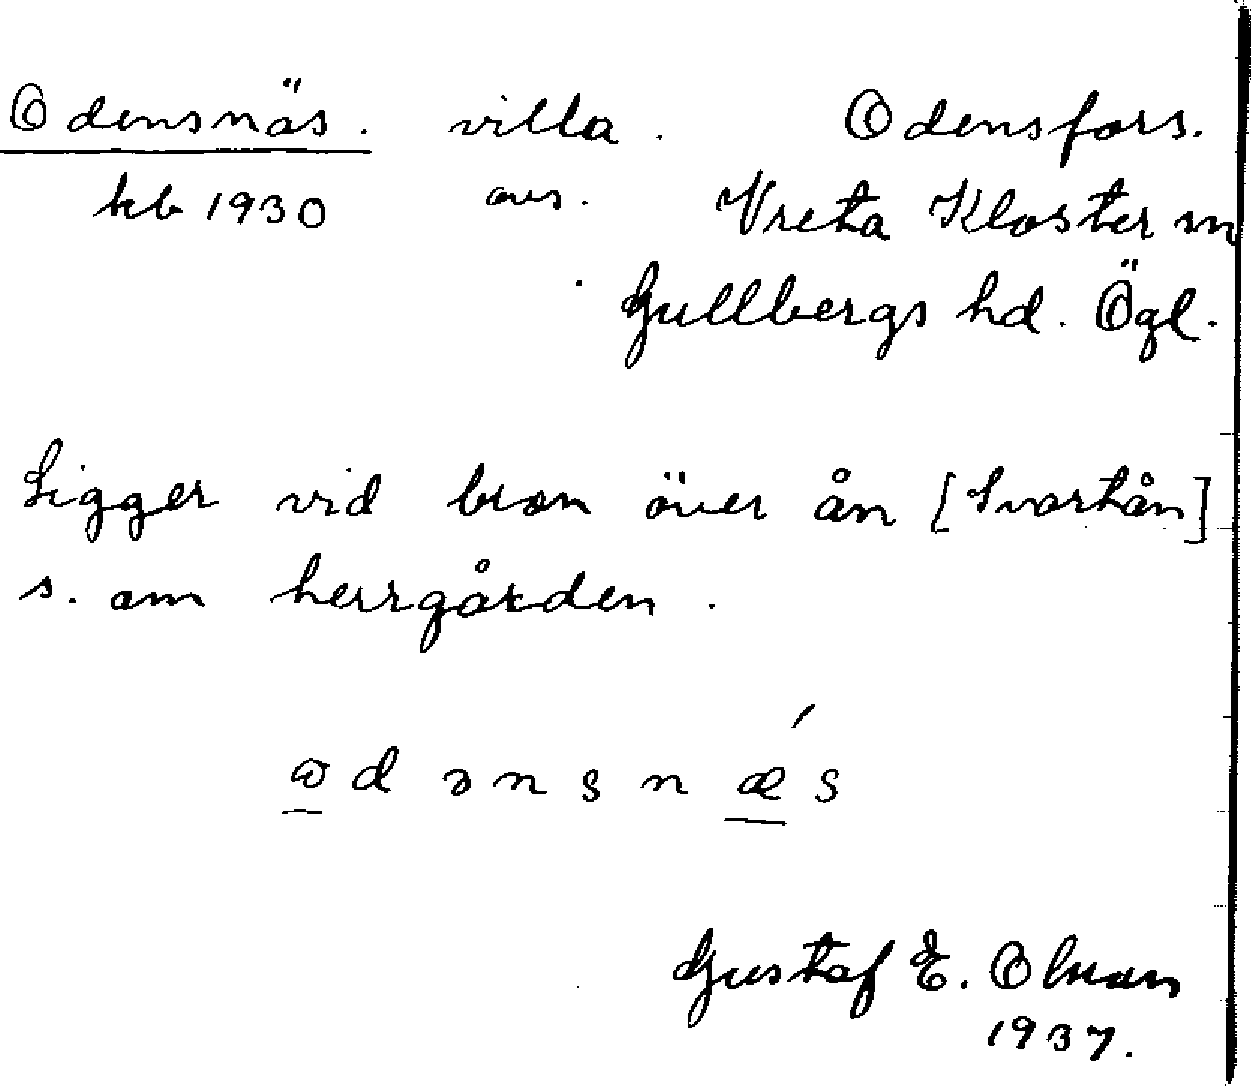 Odensnäs. villa. Odensfors.
kb 1930 avs. Vreta Kloster sn
Gullbergs hd. Ögl.
Ligger vid bron över ån [Svartån]
s. om herrgården.
ɷdənsnǽs
Gustaf E. Olsson
1937.